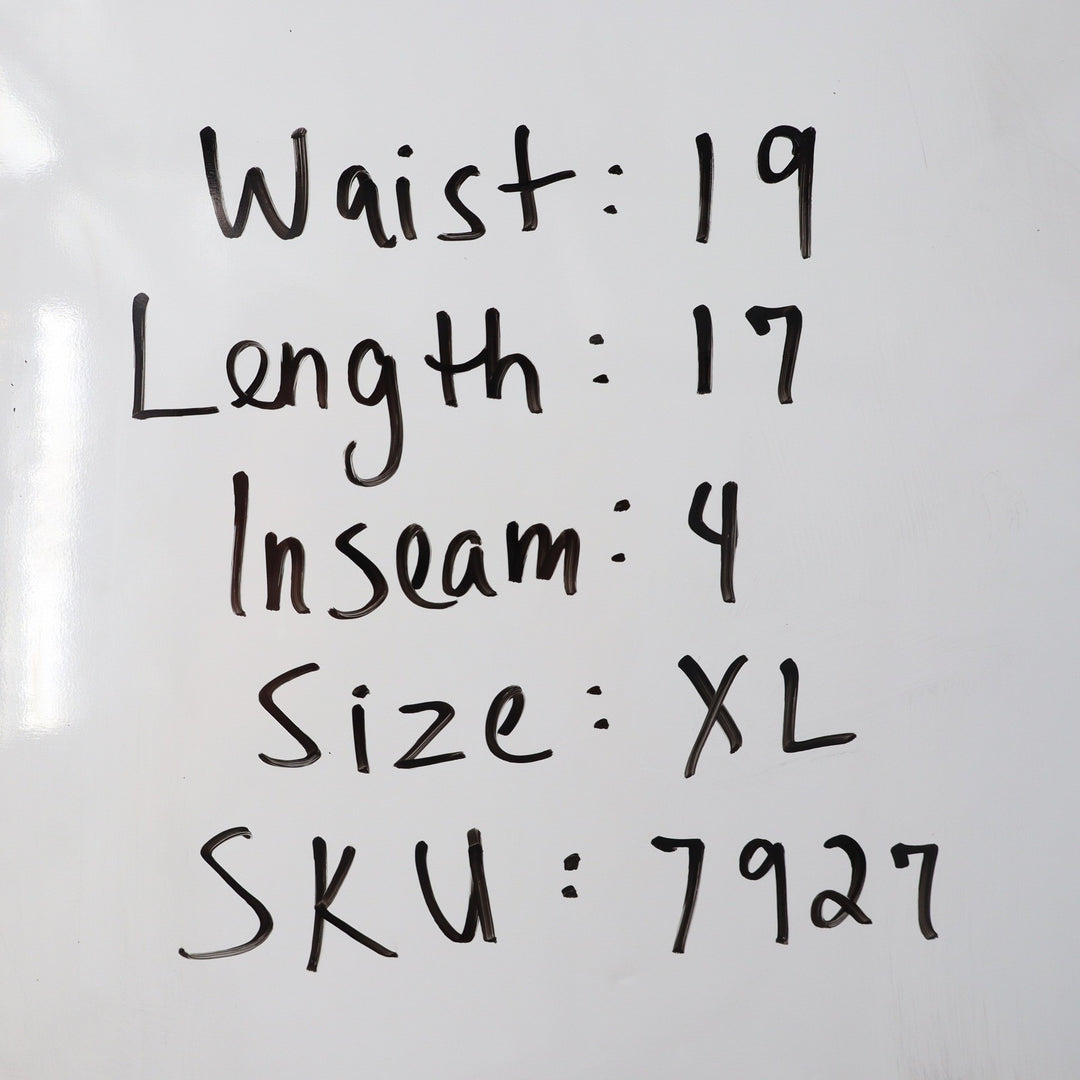 Waist: 19
Length: 17
Inseam: 4
Size: XL
SKU: 7927